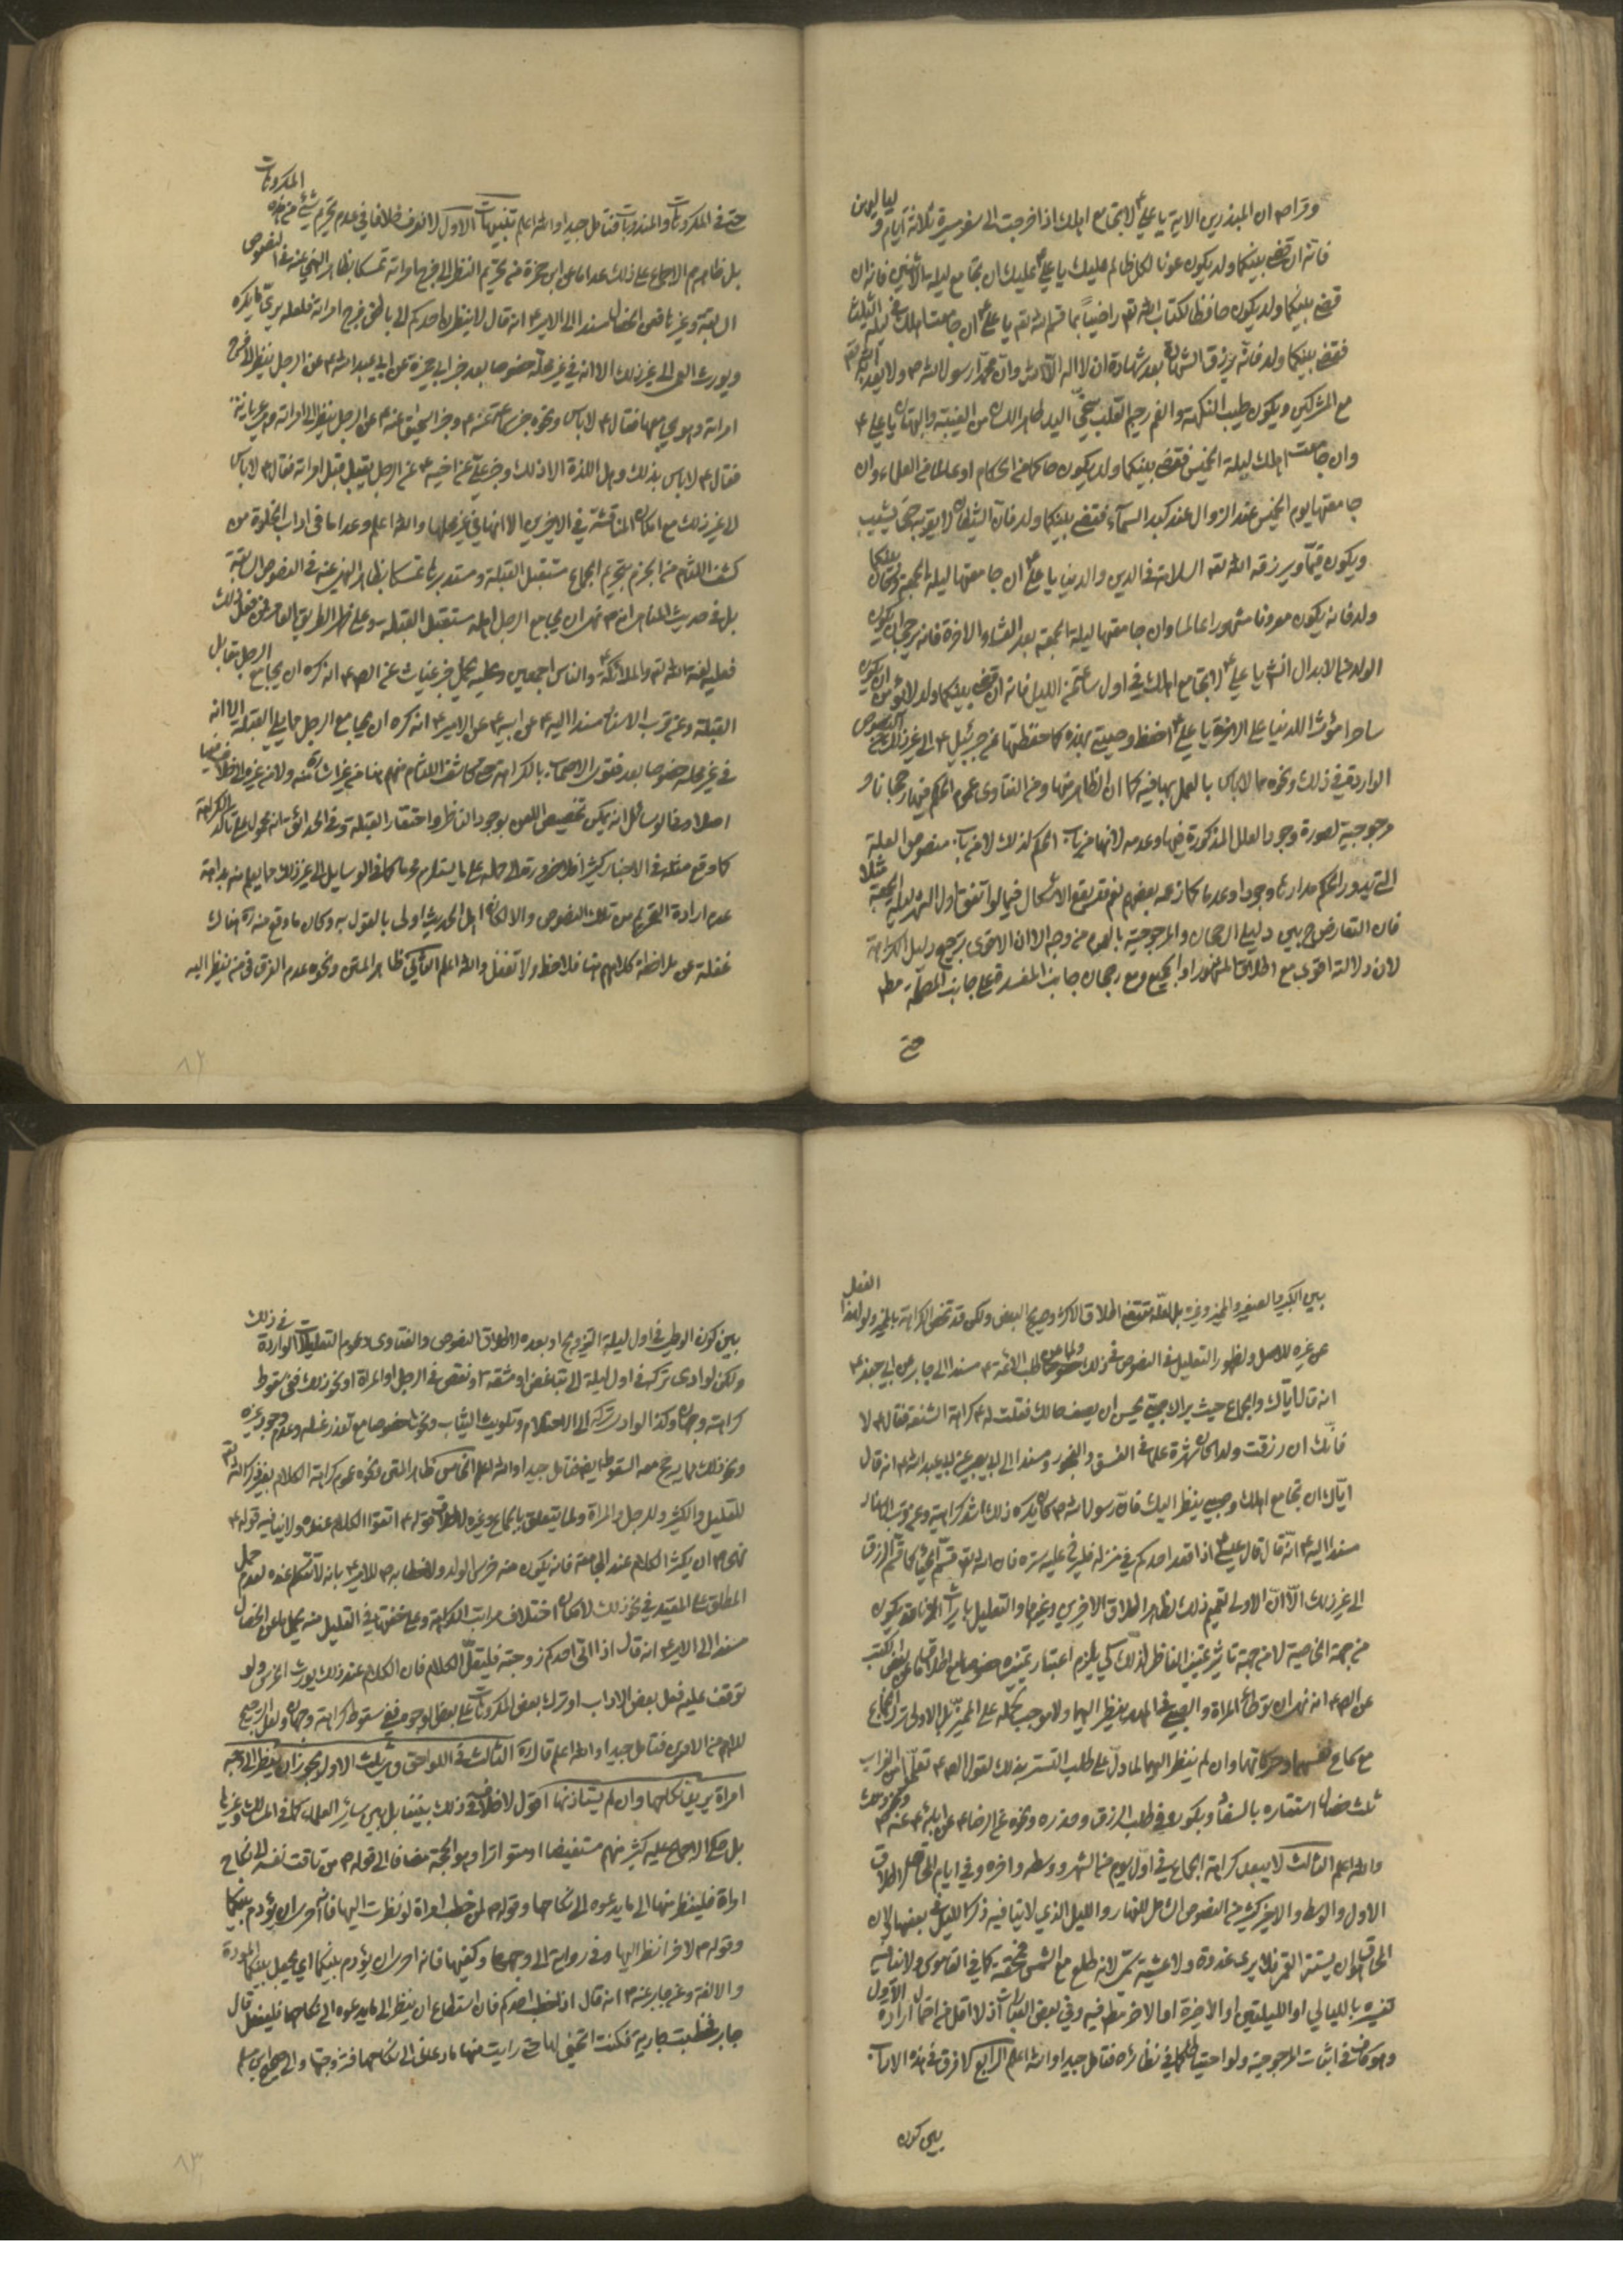 وقرا ص ان المبذرين الاية يا علي ع لا تجامع اهلك اذا خرجت الى سفر مسيرة ثلاثة ايام و لياليهن
فانه ان قضي بينكما ولد يكون عونا لكل ظالم عليك يا علي ع عليك ان تجامع ليلة الاثنين فانه ان
قضي بينكما ولد يكون حافظا لكتاب الله تع راضيا بما قسم الله تع يا علي ع ان جامعت اهلك في ليلة الثلثا
فقضي بينكما ولد فانه يرزق الشهادة بعد شهادة ان لا اله الا الله وان محمدا رسول الله ص ولا يعذبه الله تع
مع المشركين ويكون طيب النكهة والفم رحيم القلب سخي اليد طاهر اللسان من الغيبة والبهتان يا علي ع
وان جامعت اهلك ليلة الخميس فقضي بينكما ولد يكون حاكما من الحكام او عالما من العلماء وان
جامعتها يوم الخميس عند الزوال عند كبد السماء فقضي بينكما ولد فان الشيطان لا يقربه حتى يشيب
ويكون قيما ويرزقه الله تع السلامة في الدين والدنيا يا علي ع ان جامعتها ليلة الجمعة وكان بينكما
ولد فانه يكون معروفا مشهورا عالما وان جامعتها ليلة الجمعة بعد العشاء الاخرة فانه يرجى ان يكون
الولد من الابدال انش يا علي ع لا تجامع اهلك في اول ساعة من الليل فانه ان قضي بينكما ولد لا يؤمن ان يكون
ساحرا مؤثرا للدنيا على الاخرة يا علي ع احفظ وصيتي هذه كما حفظتها عن جبرئيل ع الى غير ذلك من النصوص
الواردة في ذلك ونحوه مما لا باس بالعمل بها فيه كما ان الظاهر منها ومن الفتاوى عموم الحكم فيها رجحانا و
مرجوحية لصورة وجود العلل المذكورة فيها وعدمه لانها من باب الحكم لذلك لا من باب منصوص العلة
التي يدور الحكم مدارها وجودا وعدما كما زعمه بعضهم نعم قد يقع الاشكال فيما لو اتفق اول الشهر ليلة الجمعة مثلا
فان التعارض ح بين دليلي الرجحان والمرجوحية بالعموم من وجه الا ان الاقوى ترجيح دليل الكراهة
لان دلالته اقوى مع اطلاق المشهور او الجميع ومع رجحان جانب المفسدة على جانب المصلحة مط
حتى
المكروهات
حتى في المكروهات والمندوبات فتامل جيدا والله اعلم تنبيهات الاول لا نعرف خلافا في عدم تحريم شيء من هذه
بل ظاهرهم الاجماع على ذلك عدا ما عن ابن حمزة من تحريم النظر الى فرج امراته تمسكا بظاهر النهي عنه في النصوص
السابقة وغيرها فعن الخصال مسندا الى الامير ع انه قال لا ينظرن احدكم الى باطن فرج امراته فلعله يرى ما يكره
ويورث العمى الى غير ذلك الا انه في غير محله خصوصا بعد خبر ابي حمزة عن ابي عبد الله ع عن الرجل ينظر الى فرج
امراته وهو يجامعها فقال ع لا باس ونحوه خبر سماعة عنه ع وخبر اسحق عنه ع عن الرجل ينظر الى امراته وهي عريانة
فقال ع لا باس بذلك وهل اللذة الا ذلك وخبر علي عن اخيه ع عن الرجل يقبل قبل امراته فقال ع لا باس
الى غير ذلك مع امكان المناقشة في الاخيرين الا انها في غير محلها والله اعلم وعدا ما في اداب الخلوة من
كشف اللثام من الجزم بتحريم الجماع مستقبل القبلة ومستدبرها تمسكا بظاهر النهي عنه في النصوص السابقة
بل في حديث المناهي انه ص نهى ان يجامع الرجل اهله مستقبل القبلة وعلى ظهر الطريق العامر فمن فعل ذلك
فعليه لعنة الله تع والملائكة والناس اجمعين وعليه يحمل خبر غياث عن الص ع انه كره ان يجامع الرجل مقابل
القبلة وعن قرب الاسناد مسندا اليه ع عن ابيه ع عن الامير ع انه كره ان يجامع الرجل مما يلي القبلة الا انه
في غير محله خصوصا بعد فتوى الاصحاب بالكراهة حتى كاشف اللثام منهم هنا من غير اشارة منه ولا من غيره الى خلاف فيها
اصلا وفي الوسائل انه يمكن تخصيص اللعن بوجود الناظر واحتقار القبلة وفي الحدائق انه محمول على تاكد الكراهة
كما وقع مثله في الاخبار كثيرا فلا ضرورة الى حمله على ما يستلزم محرما كما في الوسايل الى غير ذلك مما يعلم منه بداهة
عدم ارادة التحريم من تلك النصوص والا لكان اهل الحديث اولى بالقول به وكان ما وقع منه ره هناك
غفلة عن ملاحظة كلامهم هنا فلاحظ ولا تغفل والله اعلم الثاني ظاهر المتن ونحوه عدم الفرق في من ينظر اليه
٨٢
بين الكبير والصغير والمميز وغيره بل لعله مقتضى اطلاق الاكثر وصريح البعض ولكن قد تختص الكراهة بالمميز ولو لهذا الفعل
عن غيره للاصل ولظهور التعليل في النصوص في ذلك خصوصا ولما عن طب الائمة ع مسندا الى جابر عن ابي جعفر ع
انه قال اياك والجماع حيث يراك صبي يحسن ان يصف حالك فقلت له ع كراهة الشنعة فقال ع لا
فانك ان رزقت ولدا كان شهرة علما في الفسق والفجور ومسندا الى ابي بصير عن ابي عبد الله ع انه قال
اياك ان تجامع اهلك وصبي ينظر اليك فان رسول الله ص كان يكره ذلك اشد كراهية وعن قرب الاسناد
مسندا اليه ع انه قال قال عيسى ع اذا قعد احدكم في منزله فليرخ عليه ستره فان الله تع قسم الحياء كما قسم الرزق
الى غير ذلك الا ان الاولى تعميم ذلك لظاهر اطلاق الاخيرين وغيرهما والتعليل بايراث الزنا قد يكون
من جهة الخاصية لا من جهة تاثير عين الناظر لذلك كي يلزم اعتبار تميزه خصوصا مع اطلاق ما عن بعض الكتب
عن الص ع انه نهى ان توطا المراة والصبي في المهد ينظر اليهما ولا موجب لحمله على المميز بل الاولى ترك الجماع
مع سماع نفسهما وحركاتهما وان لم ينظر اليهما لما دل على طلب التستر بذلك لقول الص ع تعلموا من الغراب
ثلث خصال استتاره بالسفاد وبكوره في طلب الرزق وحذره ونحوه عن الرضا ع عن ابائه ع عنه ص ونحو ذلك
والله اعلم الثالث لا يبعد كراهة الجماع في اول يوم من الشهر ووسطه واخره وفي ايام المحاق لاطلاق
الاول والوسط والاخير كثير من النصوص الشامل للنهار والليل الذي لا ينافيه ذكر الليل في بعضها لان
المحاق ان يستتر القمر فلا يرى غدوة ولا عشية سمي لانه طلع مع الشمس فمحقته كما في القاموس ولا ينافيه
تفسيره بالليالي او الليلتين او الاخيرة او الاخر مط فيه وفي بعض العبارات اذ لا اقل من احتمال ارادة الاول
وهو كاف في اثبات المرجوحية ولو احتياطا كما في نظائره فتامل جيدا والله اعلم الرابع لا فرق في هذه الاداب
بين كون
بين كون الوطي في اول ليلة التزويج او بعده لاطلاق النصوص والفتاوى وعموم التعليلات الواردة في ذلك
ولكن لو ادى تركه في اول ليلة الى تباغض او مشقة او نقص في الرجل او المراة او نحو ذلك ففي سقوط
كراهته وجهان وكذا لو ادى تركه الى الاحتلام وتلويث الثياب ونحوها خصوصا مع تعذر غسله وعدم وجود غيره
ونحو ذلك مما يرجح معه السقوط ايضا فتامل جيدا والله اعلم الخامس ظاهر المتن ونحوه عموم كراهة الكلام بغير ذكر الله تع
للقليل والكثير وللرجل والمراة ولما يتعلق بالجماع وغيره لاطلاق قوله ع اتقوا الكلام عنده ولا ينافيه قوله ع
نهى ص ان يكثر الكلام عند المجامعة فانه يكون منه خرس الولد ولا خطابه ص للامير ع بانه لا تتكلم عنده لعدم حمل
المطلق على المقيد في نحو ذلك لامكان اختلاف مراتب الكراهة وعلى خفتها في القليل منه يحمل ما عن الخصال
مسندا الى الامير ع انه قال اذا اتى احدكم زوجته فليقل الكلام فان الكلام عند ذلك يورث الخرس ولو
توقف عليه فعل بعض الاداب او ترك بعض المكروهات على بعض الوجوه ففي سقوط كراهته وجهان ولعل الترجيح
للاهم من الامرين فتامل جيدا والله اعلم قال ره الثالث في اللواحق وهي ثلث الاول يجوز ان ينظر الى وجه
امراة يريد نكاحها وان لم يستاذنها اقول لا خلاف في ذلك بيننا بل بين سائر العلماء كما في المسالك وغيرها
بل حكى الاجماع عليه كثير منهم مستفيضا او متواترا وهو الحجة مضافا الى قوله ص من تاقت نفسه الى نكاح
امراة فلينظر منها الى ما يدعوه الى نكاحها وقوله ص لمن خطب امراة لو نظرت اليها فانه احرى ان يؤدم بينكما
وقوله ص لاخر انظر اليها وفي رواية الى وجهها وكفيها فانه احرى ان يؤدم بينكما اي يجعل بينكما المودة
والالفة وعن جابر عنه ص انه قال اذا خطب احدكم فان استطاع ان ينظر الى ما يدعوه الى نكاحها فليفعل قال
جابر فخطبت جارية فكنت اتخبى لها حتى رايت منها ما دعاني الى نكاحها فتزوجتها والى صحيح ابن مسلم
٨٣